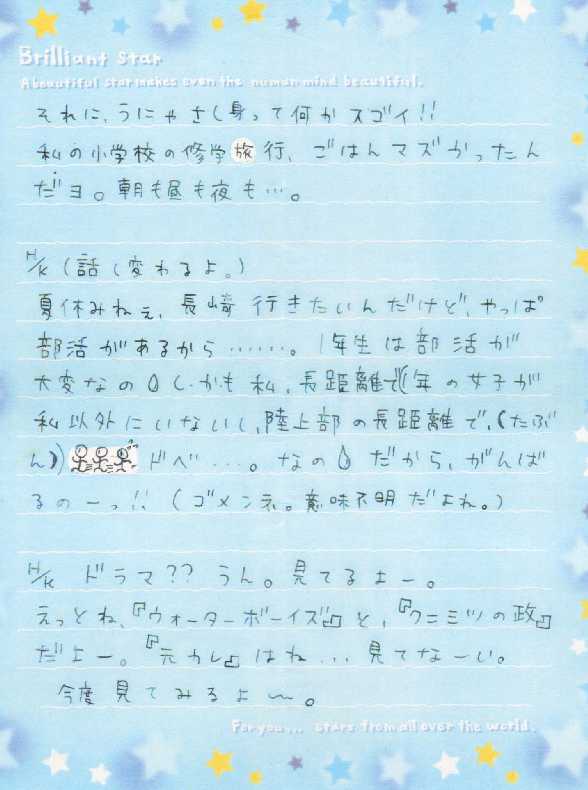 Brilliant Star
A beautiful star makes even the human mind beautiful.
それに、うにゃさし身って何かスゴイ!!
私の小学校の修学旅行、ごはんマズかったん
だヨ。朝も昼も夜も…。
H/K (話し変わるよ。)
夏休みねぇ、長崎行きたいんだけど、やっぱ
部活があるから……。1年生は部活が
大変なの。しかも私、長距離で1年の女子が
私以外にいないし、陸上部の長距離で、(たぶ
ん) ドベ…。なの。だから、がんば
るのーっ!! (ゴメンネ。意味不明だよね。)
H/K ドラマ?? うん。見てるよー。
えっとね、『ウォーターボーイズ』と、『クニミツの政』
だよー。『元カレ』はね…見てなーい。
今度見てみるよ〜。
For you... stars from all over the world.